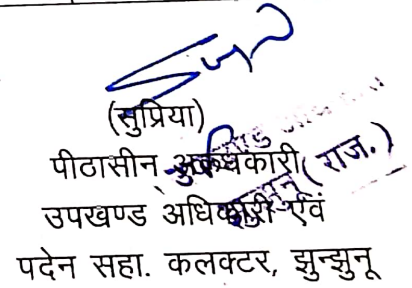 (सुप्रिया)
पीठासीन अधिकारी
उपखण्ड अधिकारी एवं
पदेन सहा. कलक्टर, झुन्झुनू
(राज.)